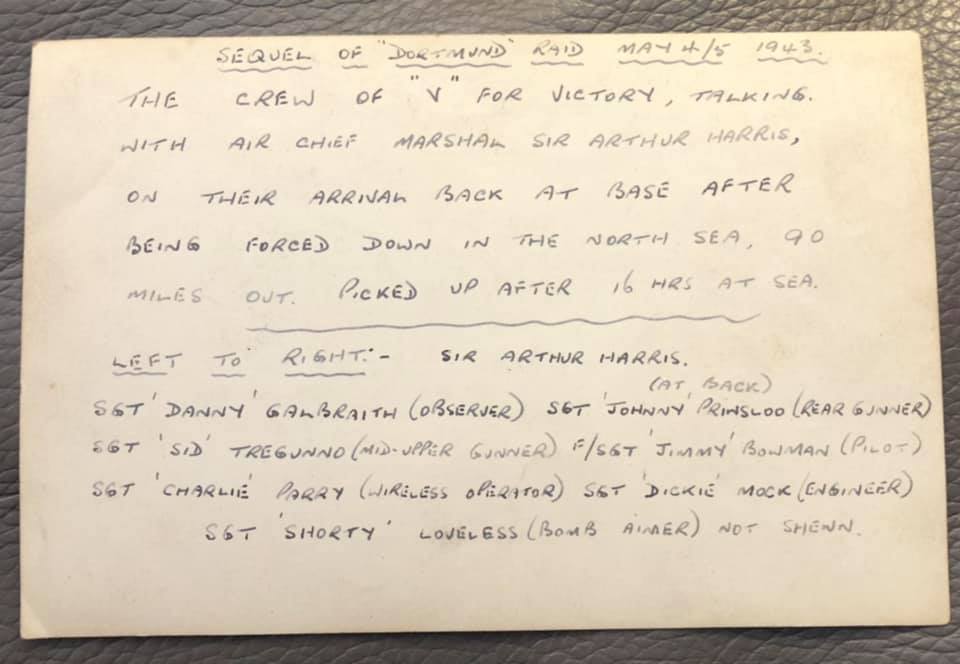 SEQUEL OF "DORTMUND" RAID MAY 4/5 1943.
THE CREW OF "V" FOR VICTORY, TALKING.
WITH AIR CHIEF MARSHAL SIR ARTHUR HARRIS,
ON THEIR ARRIVAL BACK AT BASE AFTER
BEING FORCED DOWN IN THE NORTH SEA, 90
MILES OUT. PICKED UP AFTER 16 HRS AT SEA.
LEFT TO RIGHT:- SIR ARTHUR HARRIS.
(AT BACK)
SGT 'DANNY' GALBRAITH (OBSERVER) SGT 'JOHNNY' PRINSLOO (REAR GUNNER)
SGT 'SID' TREGUNNO (MID-UPPER GUNNER) F/SGT 'JIMMY' BOWMAN (PILOT)
SGT 'CHARLIE' PARRY (WIRELESS OPERATOR) SGT 'DICKIE' MOCK (ENGINEER)
SGT 'SHORTY' LOVELESS (BOMB AIMER) NOT SHEWN.